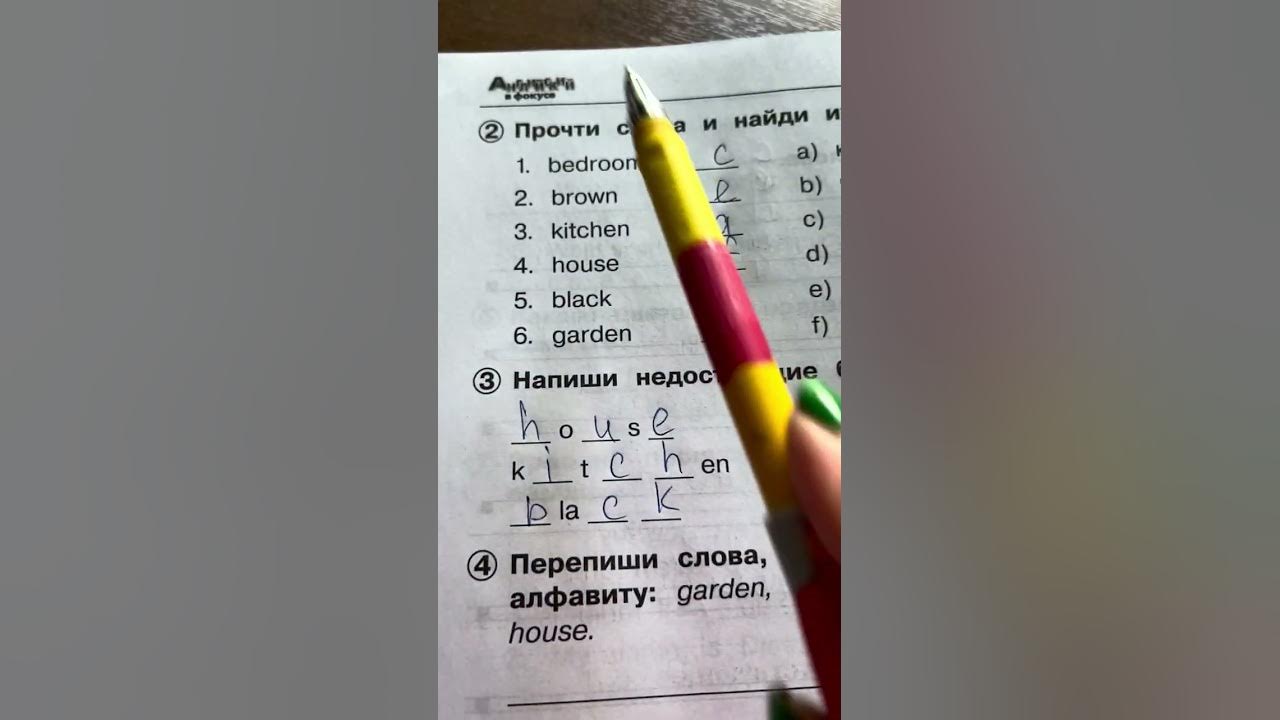 Английский
в фокусе
② Прочти и найди
1. bedroom c a)
2. brown e b)
3. kitchen a c)
4. house d)
5. black e)
6. garden f)
③ Напиши
h o u s e
k i t c h en
b la c k
④ Перепиши слова,
алфавиту: garden,
house.